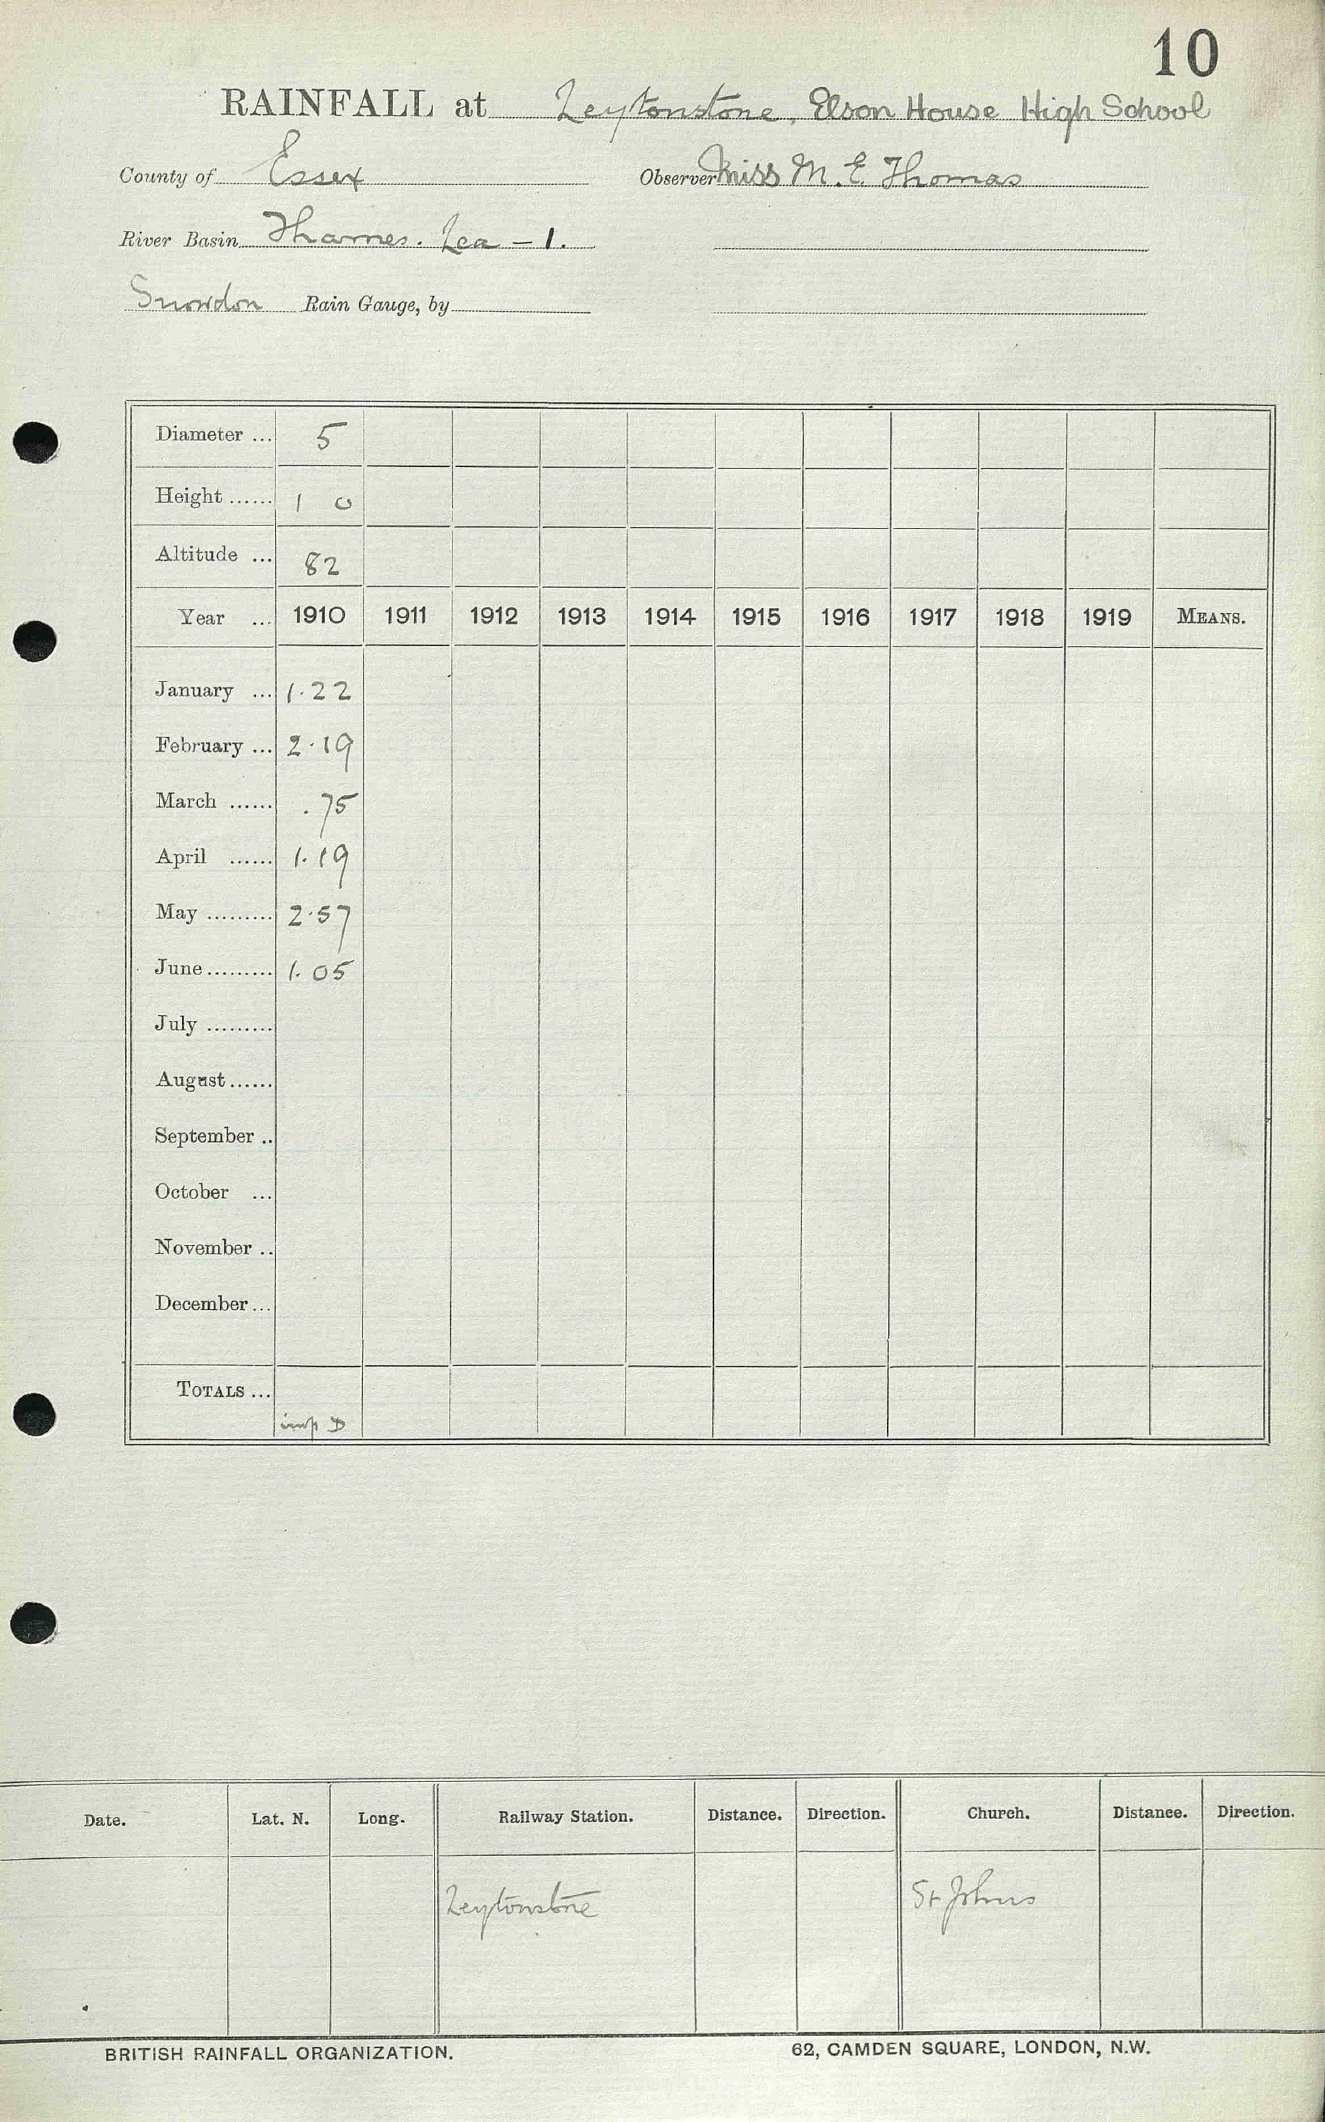 10
RAINFALL at Leytonstone, Elson House High School
County of Essex Observer Miss M. E. Thomas
River Basin Thames. Lea - 1.
Snowdon Rain Gauge, by
Diameter ... 5
Height ...... 1 0
Altitude ... 82
Year ... 1910 1911 1912 1913 1914 1915 1916 1917 1918 1919 MEANS.
January ... 1.22
February ... 2.19
March ...... .75
April ...... 1.19
May ......... 2.57
June ......... 1.05
July .........
August ......
September ..
October ...
November ..
December ...
TOTALS ...
imp D
Date. Lat. N. Long. Railway Station. Distance. Direction. Church. Distance. Direction.
Leytonstone St Johns
BRITISH RAINFALL ORGANIZATION. 62, CAMDEN SQUARE, LONDON, N.W.